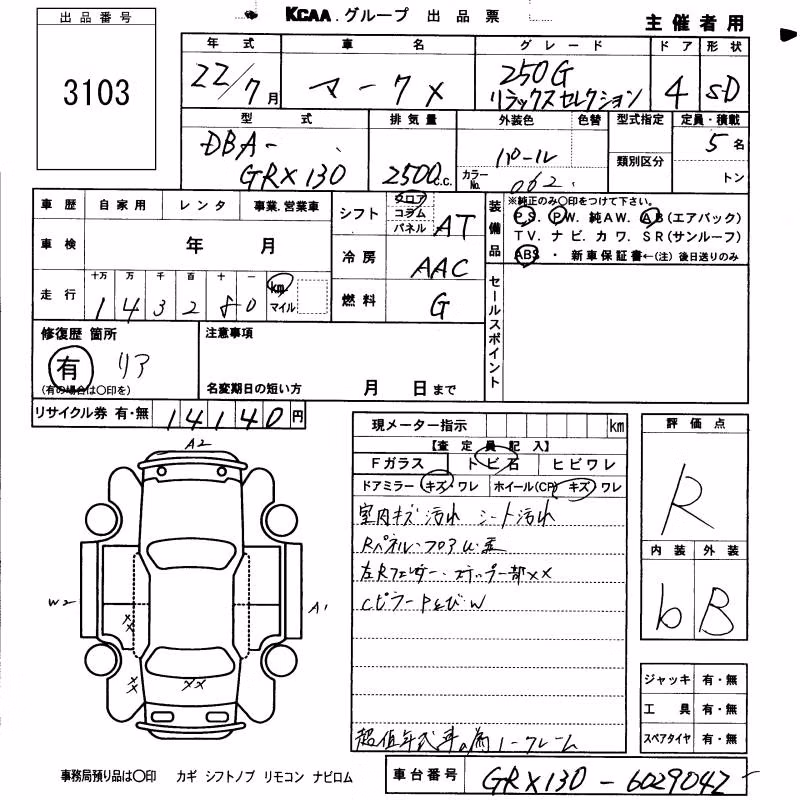 出品番号
3103
KCAA グループ 出品票
主催者用
年式 車名 グレード ドア 形状
22/7月 マークX 250G リラックスセレクション 4 SD
型式 排気量 外装色 色替 型式指定 定員・積載
DBA-GRX130 2500c.c. パール 5名
カラーNo. 062 類別区分 トン
車歴 自家用 レンタ 事業.営業車
シフト フロア コラム パネル AT
装備品 ※純正のみ〇印をつけて下さい。
P.S. P.W. 純AW. AB(エアバック)
TV. ナビ. カワ. SR(サンルーフ)
ABS ・ 新車保証書←(注)後日送りのみ
車検 年 月
冷房 AAC
走行 十万 万 千 百 十 一
143280 km マイル
燃料 G
セールスポイント
修復歴 箇所
有 リア
(有の場合は〇印を)
注意事項
名変期日の短い方 月 日まで
リサイクル券 有・無 14140円
現メーター指示 km
【査定員記入】
Fガラス トビ石 ヒビワレ
ドアミラー キズ・ワレ ホイール(CP) キズ・ワレ
室内キズ汚れ シート汚れ
Rパネル・フロア
左Rフェンダー・ステップ一部XX
Cピラー W
評価点
R
内装 外装
b B
A2
W2
A1
XX
XX
XX
ジャッキ 有・無
工具 有・無
スペアタイヤ 有・無
事務局預り品は〇印 カギ シフトノブ リモコン ナビロム
車台番号 GRX130-6029042